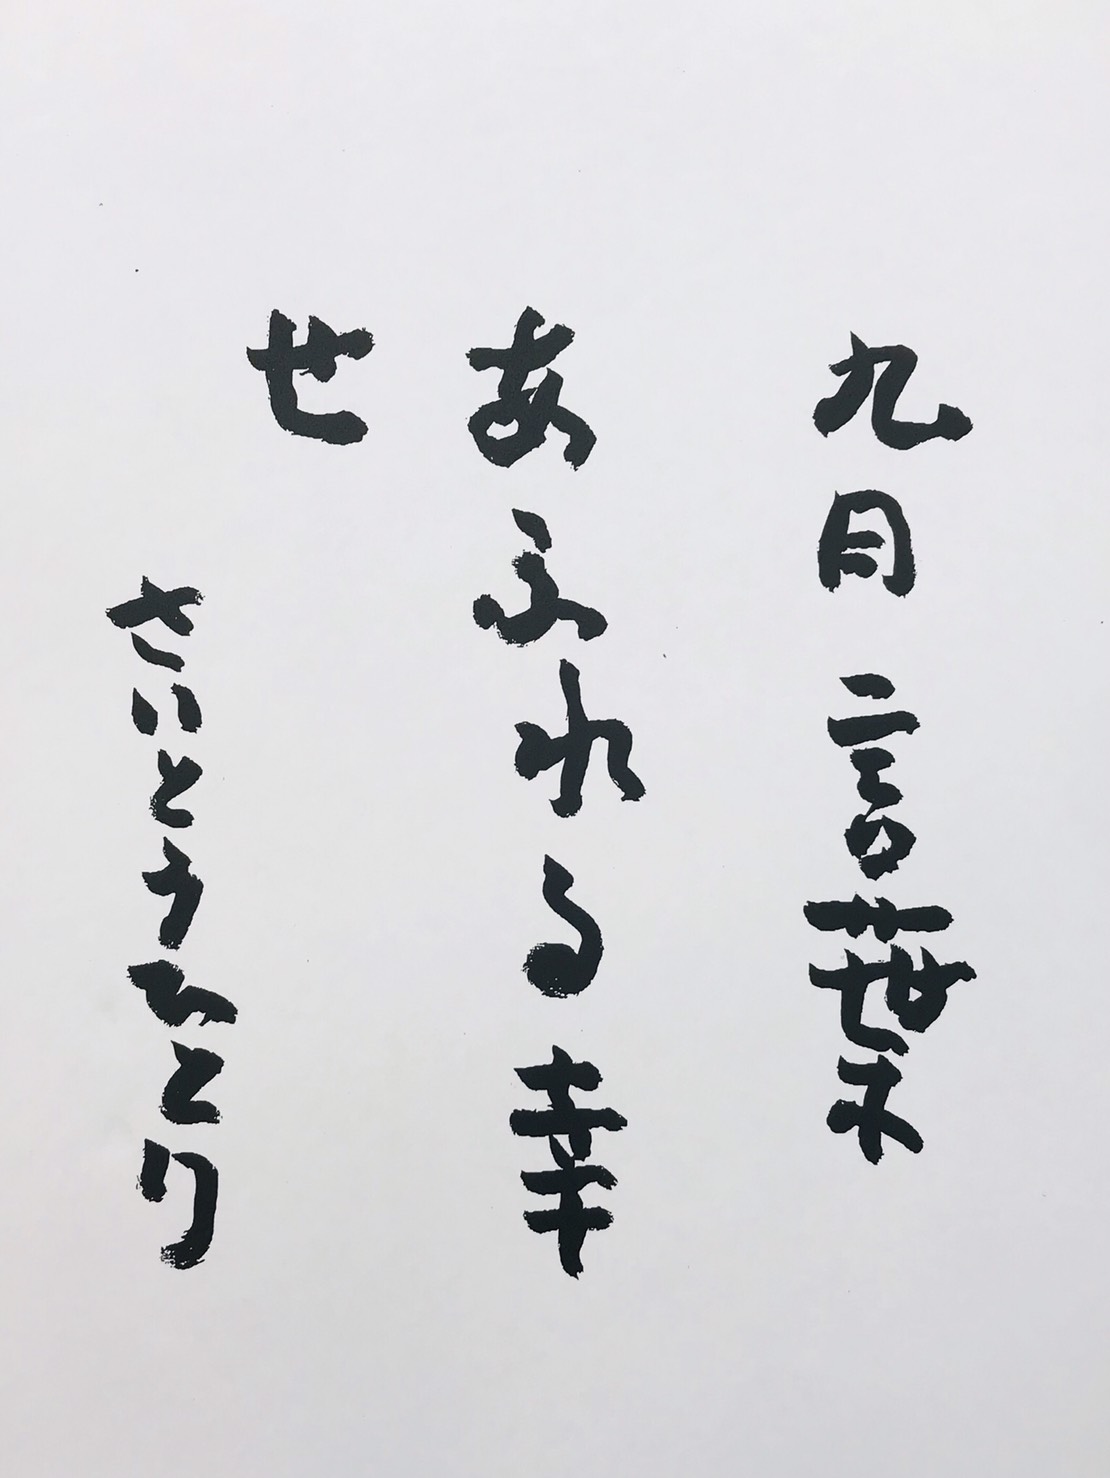 九月 言葉
あふれる幸
せ
さいとうひとり